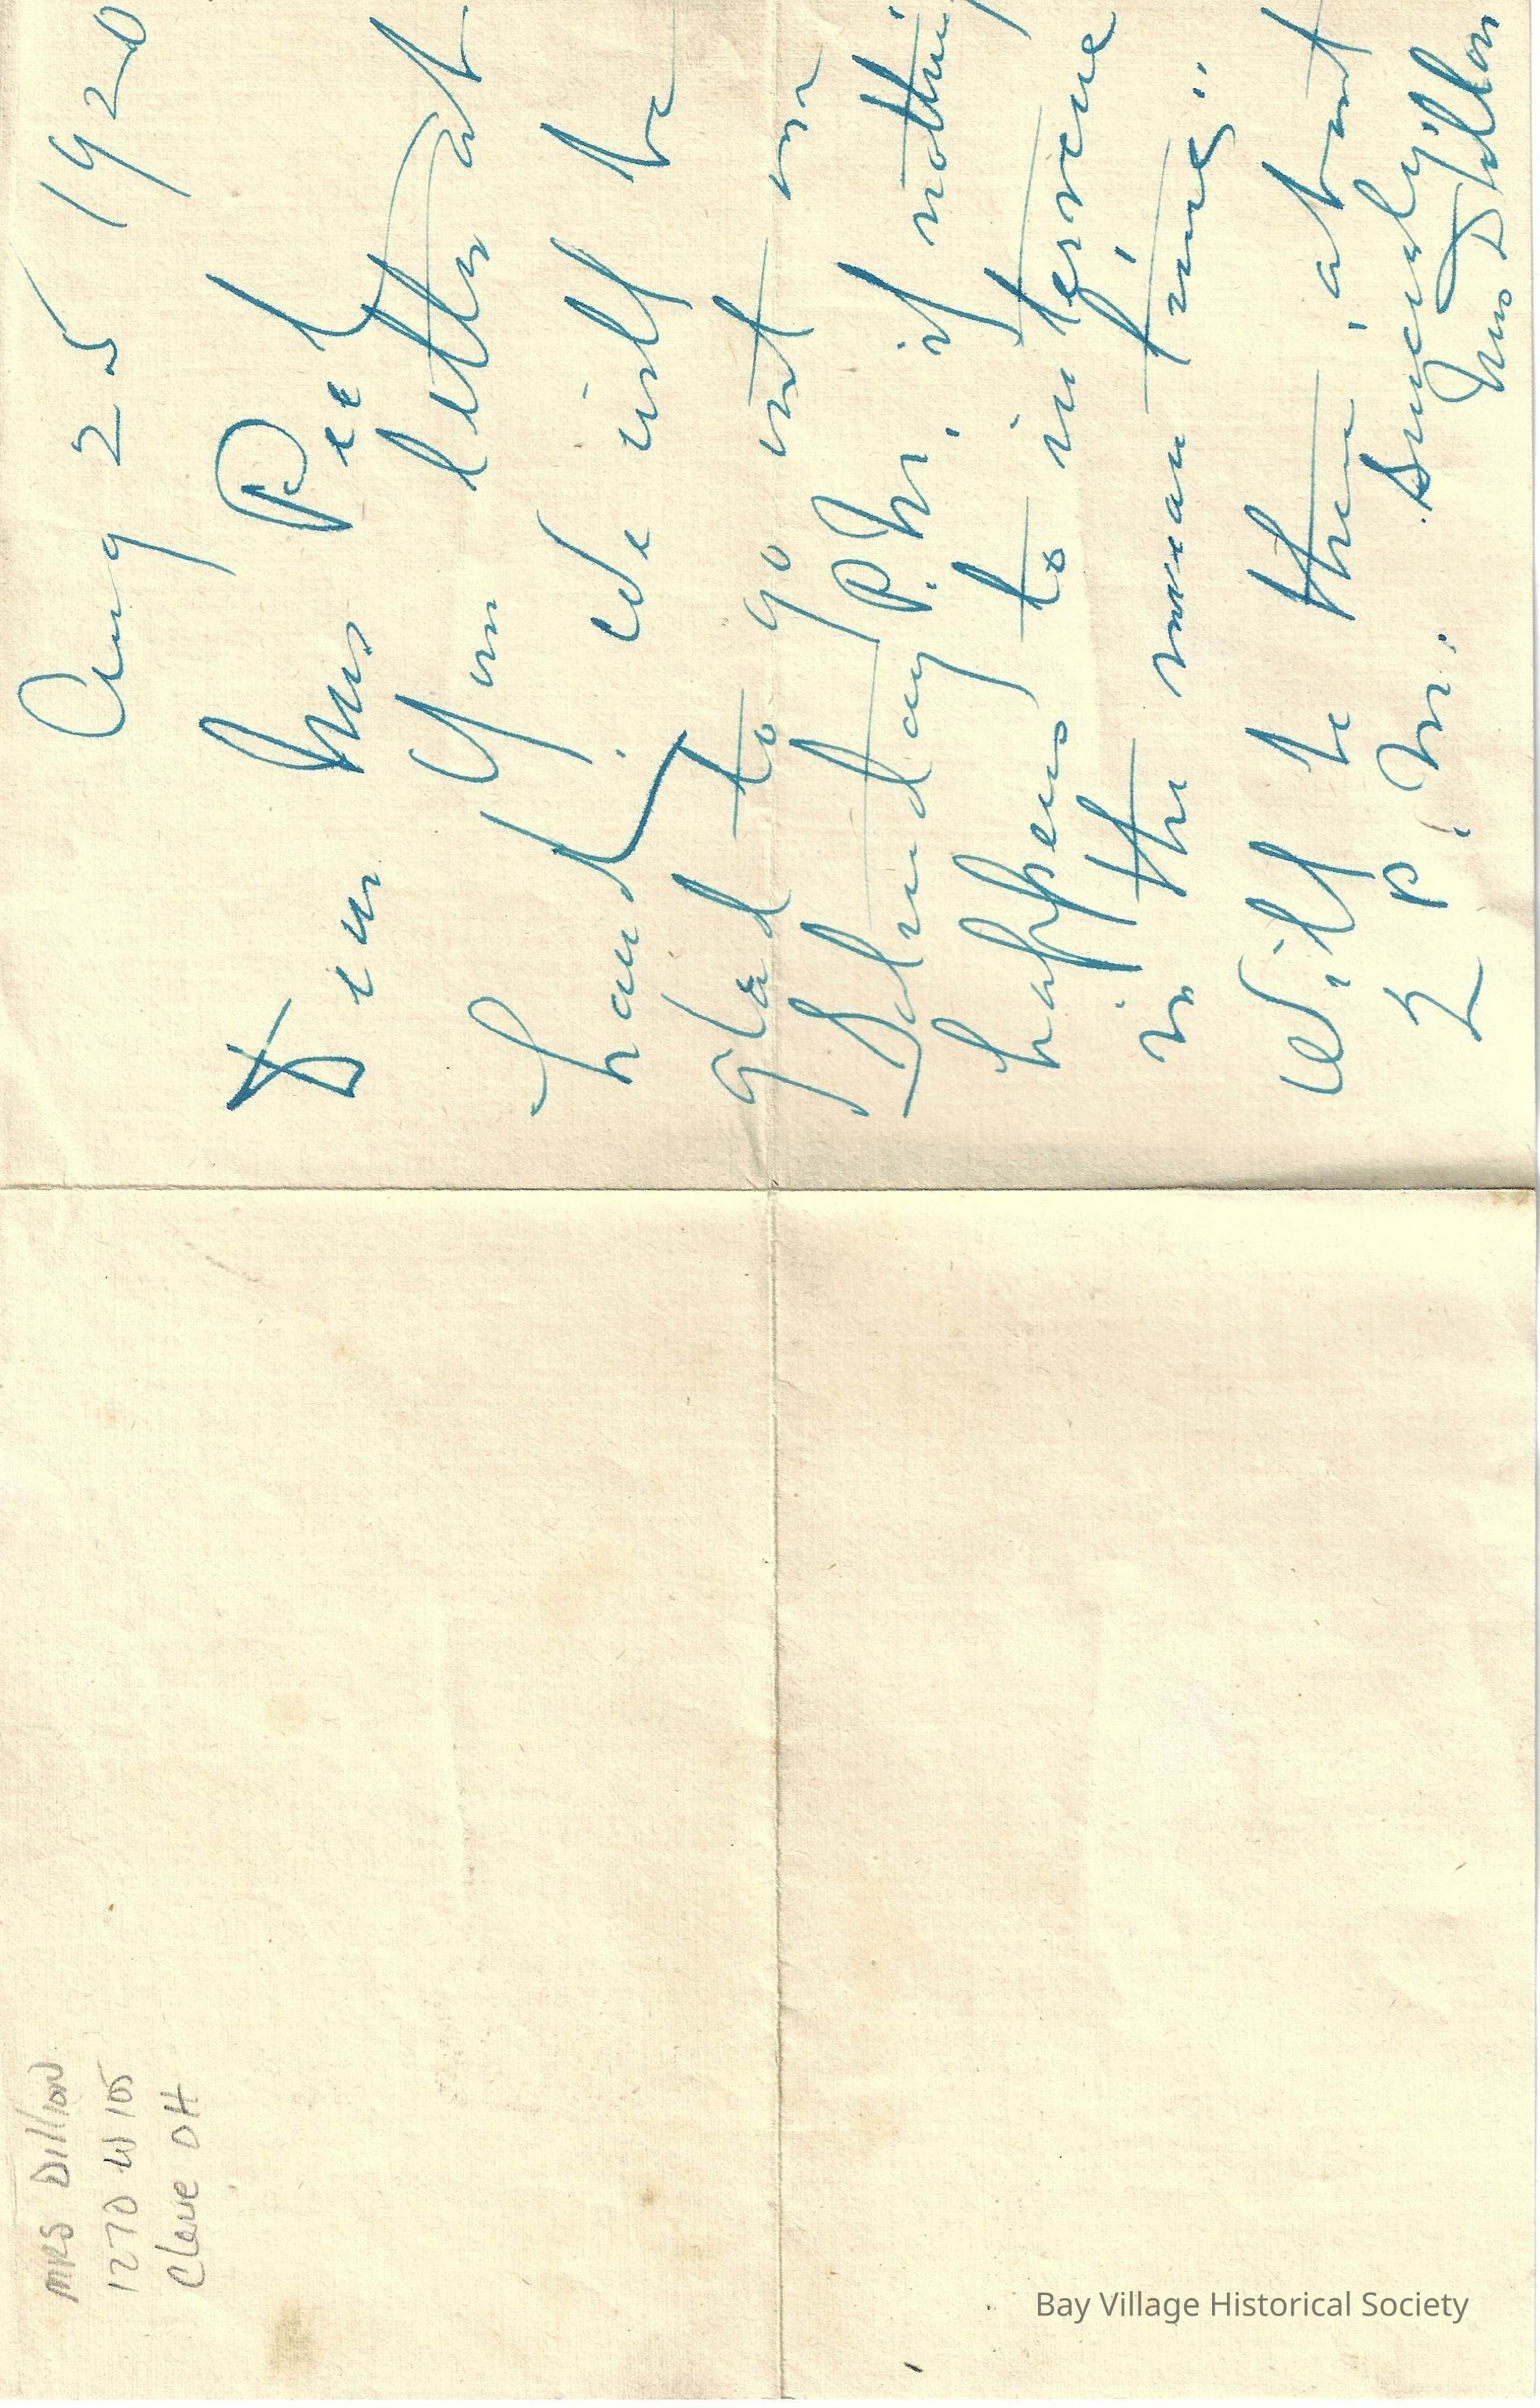 Aug 25 1920
Dear Mrs Peet
Your letter at
hand. We will be
glad to go out on
Sunday P.M. if nothing
happens to intervene
in the mean time.
Will be there about
2 P.M. Sincerely
Mrs Dillon
MRS Dillon
1270 W 105
Cleve OH
Bay Village Historical Society